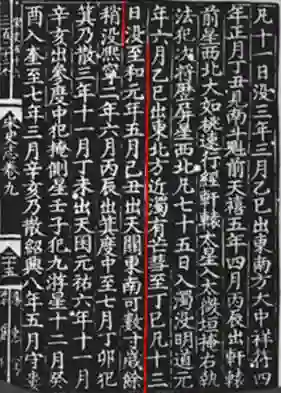 凡十一日没三年三月乙巳出東南方大中祥符四
年正月丁丑見南斗魁前天禧五年四月丙辰出軒轅
前星西北大如桃速行經軒轅大星入太微垣掩右執
法犯次將歷屏星西北凡七十五日入濁没明道元
年六月乙巳出東北方近濁有芒彗至丁巳凡十三
日没至和元年五月己丑出天關東南可數寸歲餘
稍没熙寧二年六月丙辰出箕度中至七月丁卯犯
箕乃散三年十一月丁未出天囷元祐六年十一月
辛亥出參度中犯掩側星壬子犯九斿星十二月癸
酉入奎至七年三月辛亥乃散紹興八年五月守婁
志卷九